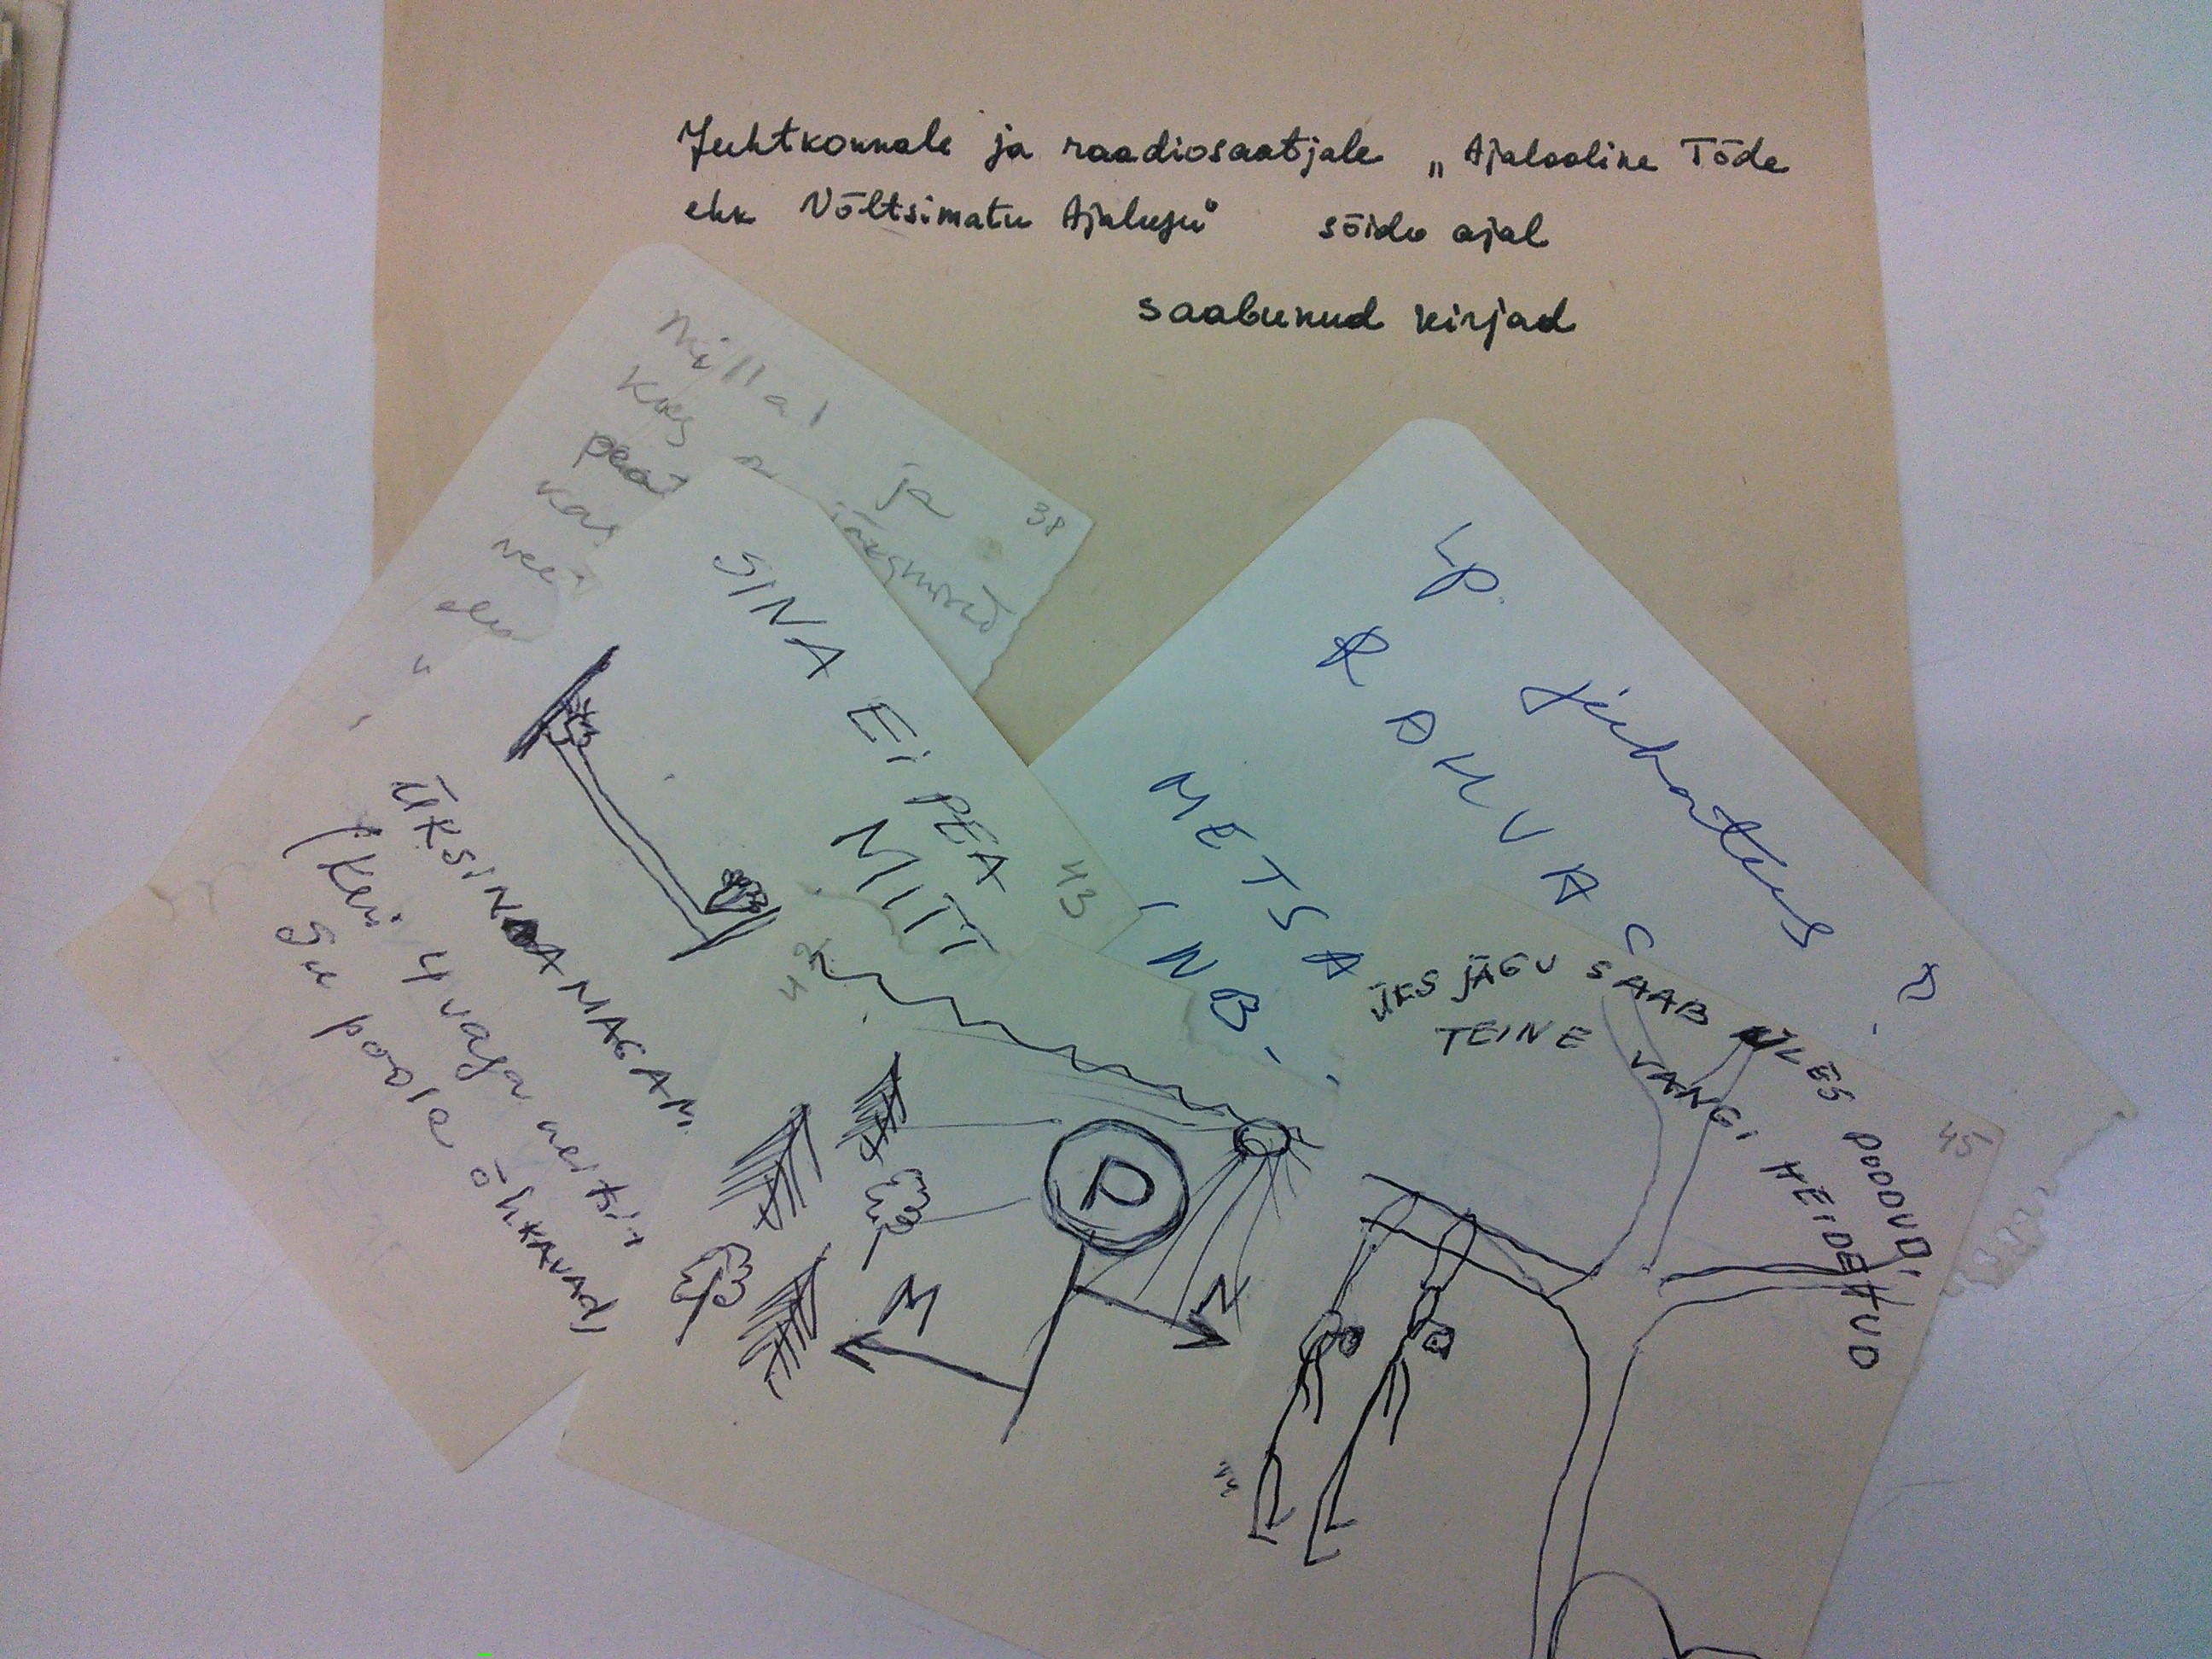 Juhtkonnale ja raadiosaatjale „Ajalooline Tõde
ehk Võltsimatu Ajalugu" sõidu ajal
saabunud kirjad
Millal ja
38
kas
SINA Ei PEA
MITT
43
ÜKSINDA MAGAM
(Kui 4 vaga neitsit
Su poole õhkavad)
Lp. juhatus
RAHVAS
METSA
NB.
42
P
M
N
ÜKS JÄGU SAAB ÜLES POODUD,
TEINE VANGI HEIDETUD
45